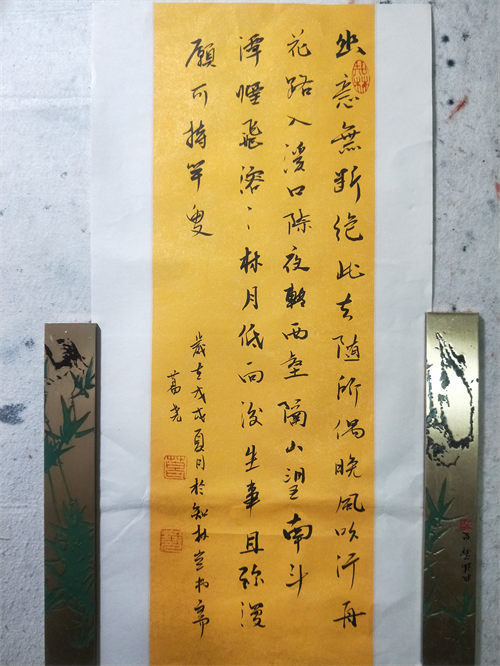 幽意無断絶此去隨所偶晚風吹行舟
花路入溪口際夜轉西壑隔山望南斗
潭煙飛溶〻林月低向後生事且弥漫
願為持竿叟
歲在戊戌夏月於知林堂書齋